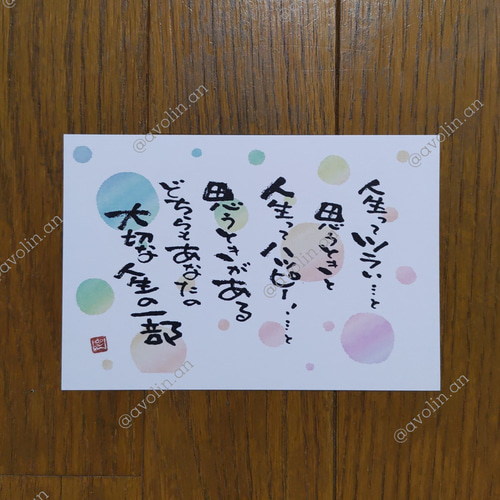 人生ってツラい…と
思うときと
人生ってハッピー!…と
思うときがある
どちらもあなたの
大切な人生の一部
@avolin.an
@avolin.an
@avolin.an
@avolin.an
@avolin.an
@avolin.an